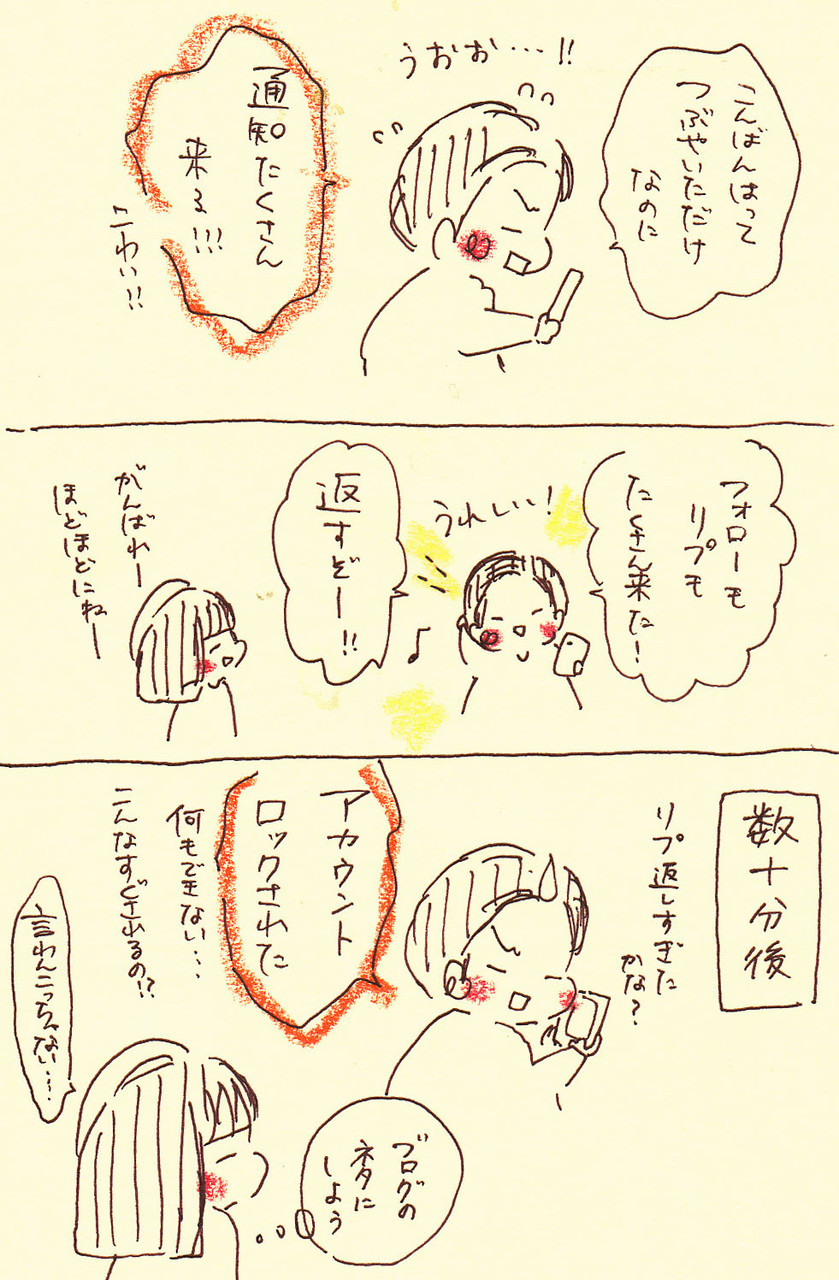 こんばんはって
つぶやいただけ
なのに
うおお…!!
通知たくさん
来る!!!
こわい!!
フォローも
リプも
たくさん来た!
うれしい!
返すぞー!!
がんばれー
ほどほどにねー
数十分後
リプ返しすぎた
かな?
アカウント
ロックされた
何もできない…
こんなすぐされるの!?
言わんこっちゃない…
ブログの
ネタに
しよう